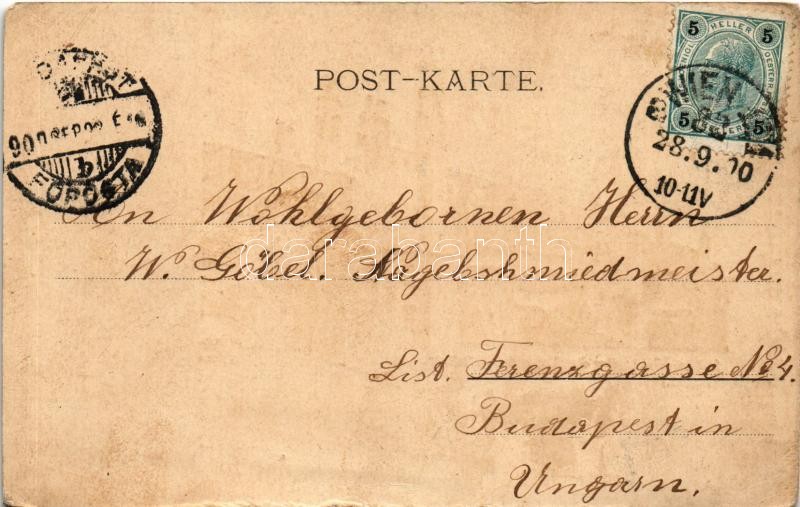 POST-KARTE.
5 HELLER 5
5 5
WIEN
28.9.00
10-11V
FŐPOSTA
An Wohlgebornen Herrn
W. Göbel. Nagelschmiedmeister.
List. Ferenzgasse No 4.
Budapest in
Ungarn.
darabanth